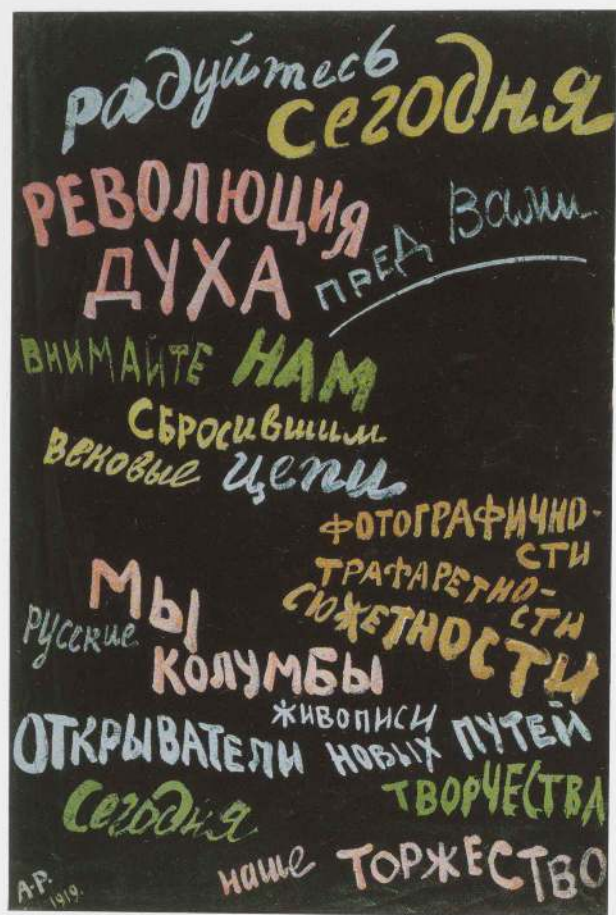 радуйтесь
сегодня
РЕВОЛЮЦИЯ
ДУХА
ПРЕД Вами
ВНИМАЙТЕ НАМ
СБРОСИВШИМ
ВЕКОВЫЕ цепи
ФОТОГРАФИЧНО-
СТИ
ТРАФАРЕТНО-
СТИ
СЮЖЕТНОСТИ
МЫ
русские
КОЛУМБЫ
ЖИВОПИСИ
ОТКРЫВАТЕЛИ НОВЫХ ПУТЕЙ
ТВОРЧЕСТВА
Сегодня
наше ТОРЖЕСТВО
А-Р.
1919.